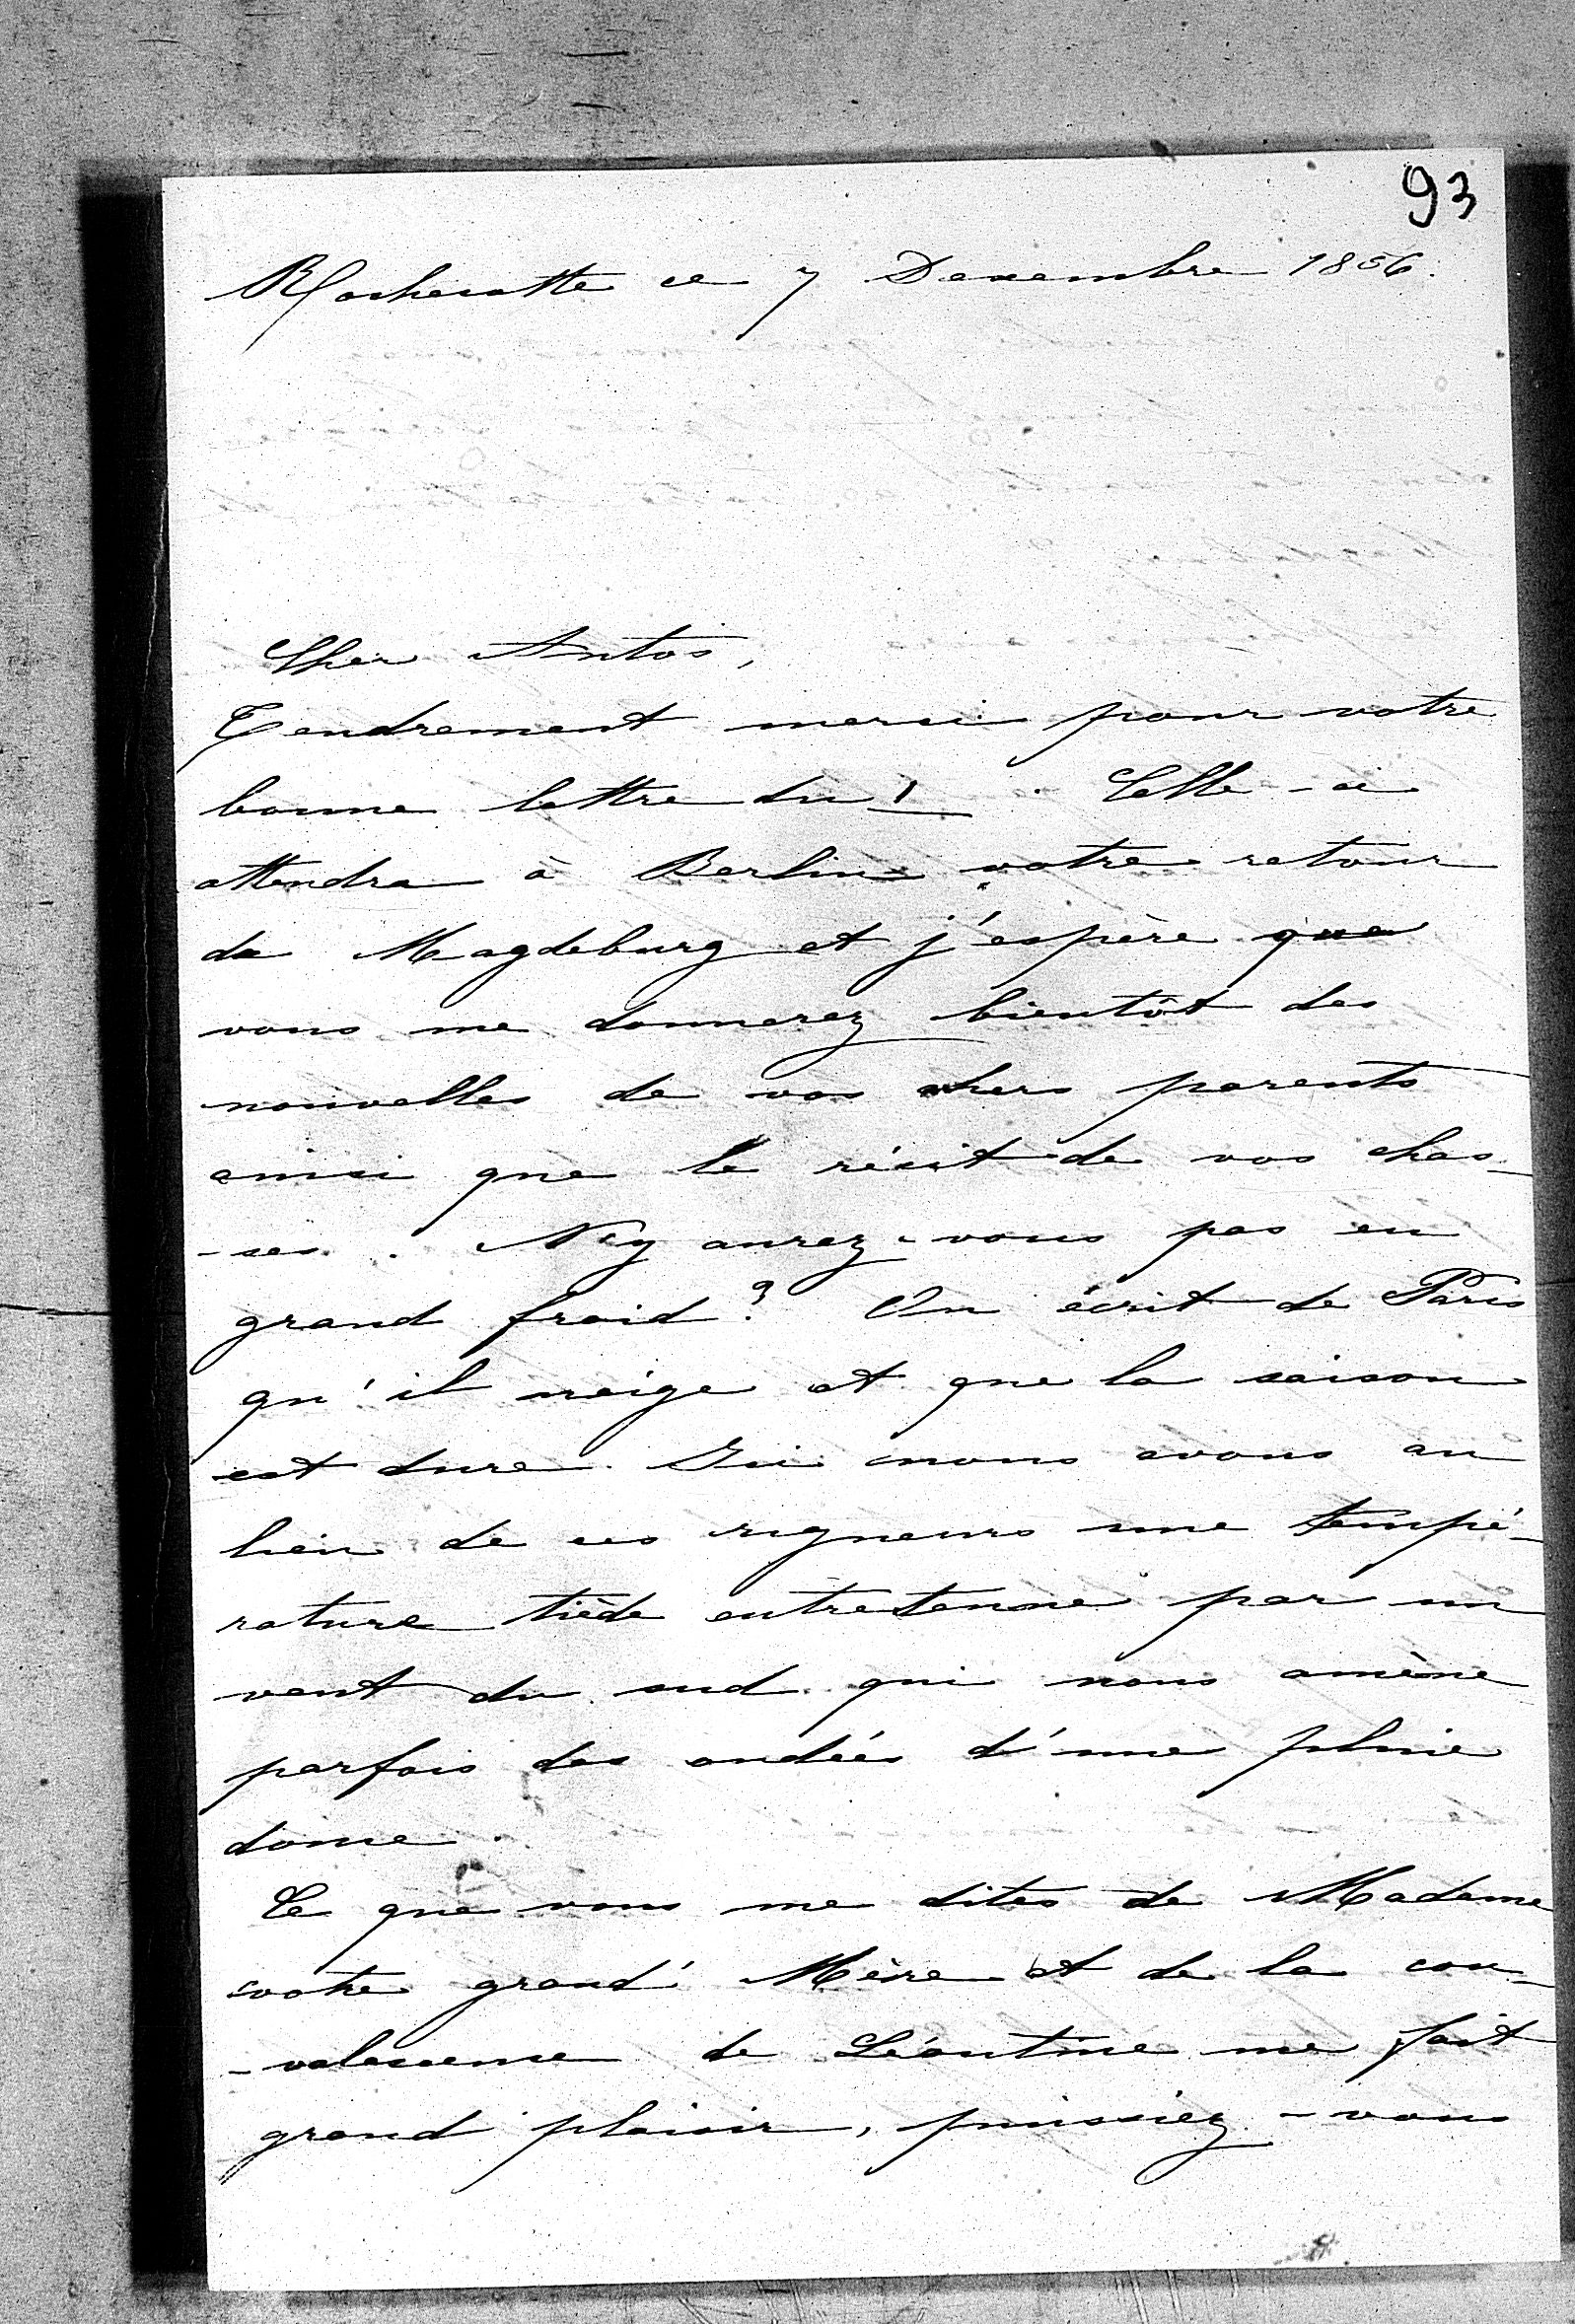 93
Rochecotte ce 7 Decembre 1856.
Cher Antos,
Tendrement merci pour votre
bonne lettre du 1. Celle-ci
attendra à Berlin votre retour
de Magdeburg et j'espère que
vous me donnerez bientôt des
nouvelles de vos chers parents
ainsi que le récit de vos chas-
-ses. N'y aurez-vous pas eu
grand froid? On écrit de Paris
qu'il neige et que la saison
est dure. Ici nous avons au
lieu de ces rigueurs une tempé-
rature tiède entretenue par un
vent du sud qui nous amène
parfois des ondées d'une pluie
douce.
Ce que vous me dites de Madame
votre grand' Mère et de la con-
-valescence de Léontine me fait
grand plaisir, puissiez-vous